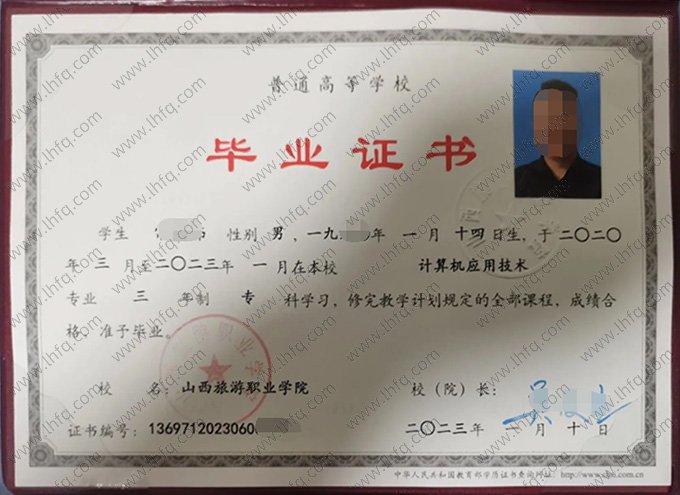 普通高等学校
毕业证书
学生 性别 男，一九 年 一 月 十四 日生，于二〇二〇
年 三 月至二〇二三年 一 月在本校 计算机应用技术
专业 三 年制 专 科学习，修完教学计划规定的全部课程，成绩合
格，准予毕业。
校 名：山西旅游职业学院 校（院）长：
证书编号：1369712023060 二〇二三年 一 月 十 日
中华人民共和国教育部学历证书查询网址：http://www.chsi.com.cn
www.lhfq.com